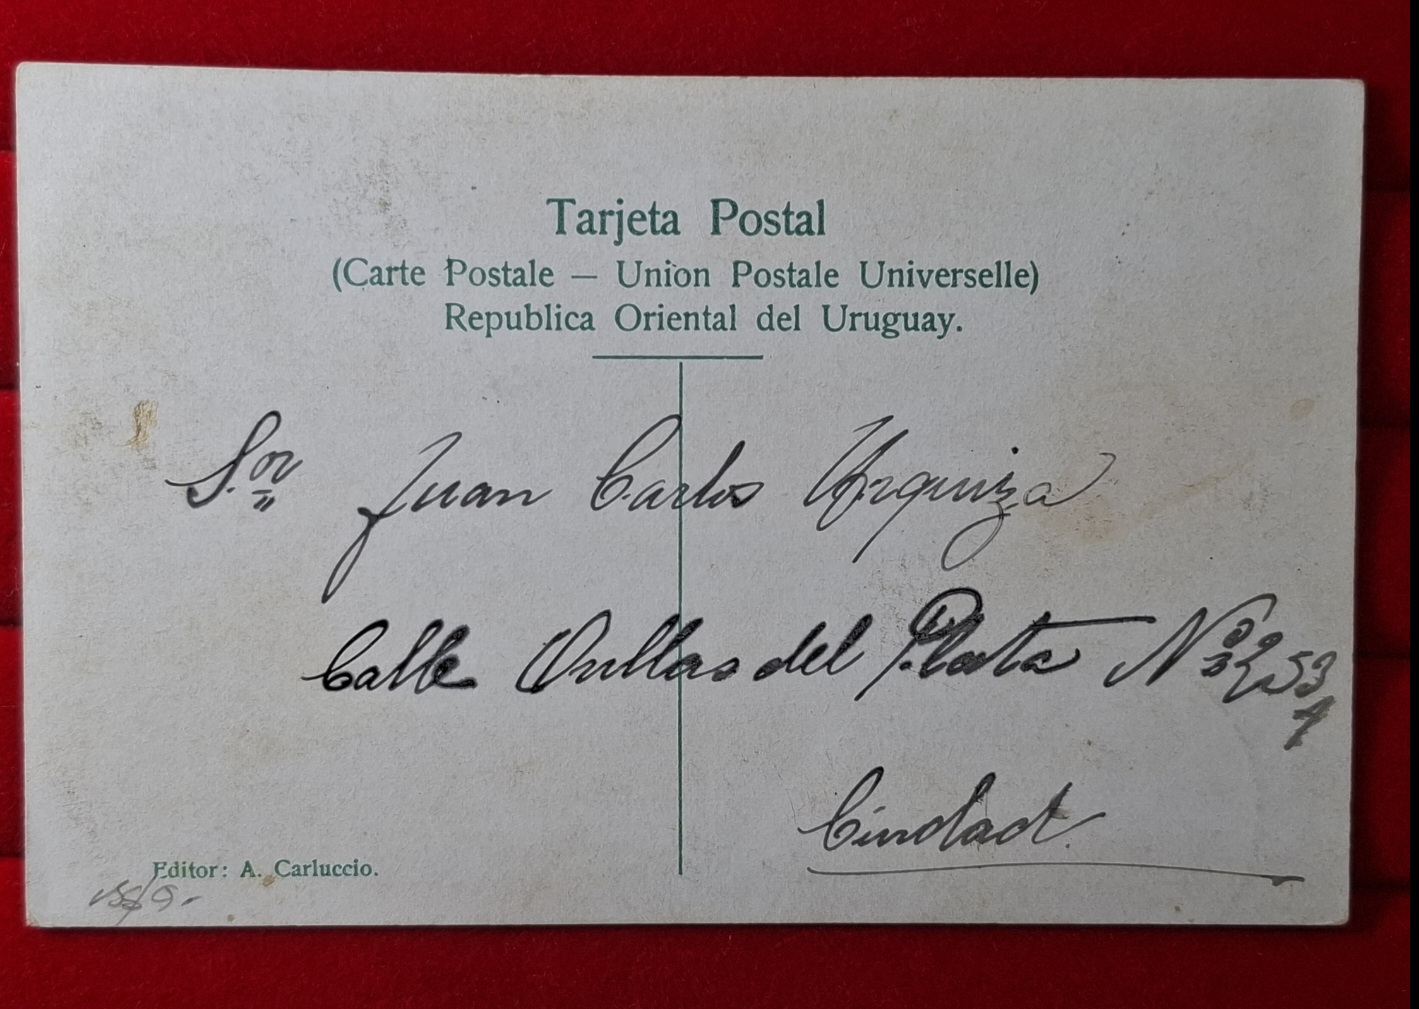 Tarjeta Postal
(Carte Postale — Union Postale Universelle)
Republica Oriental del Uruguay.
S.or Juan Carlos Urquiza
Calle Orillas del Plata Nº
Ciudad.
Editor: A. Carluccio.